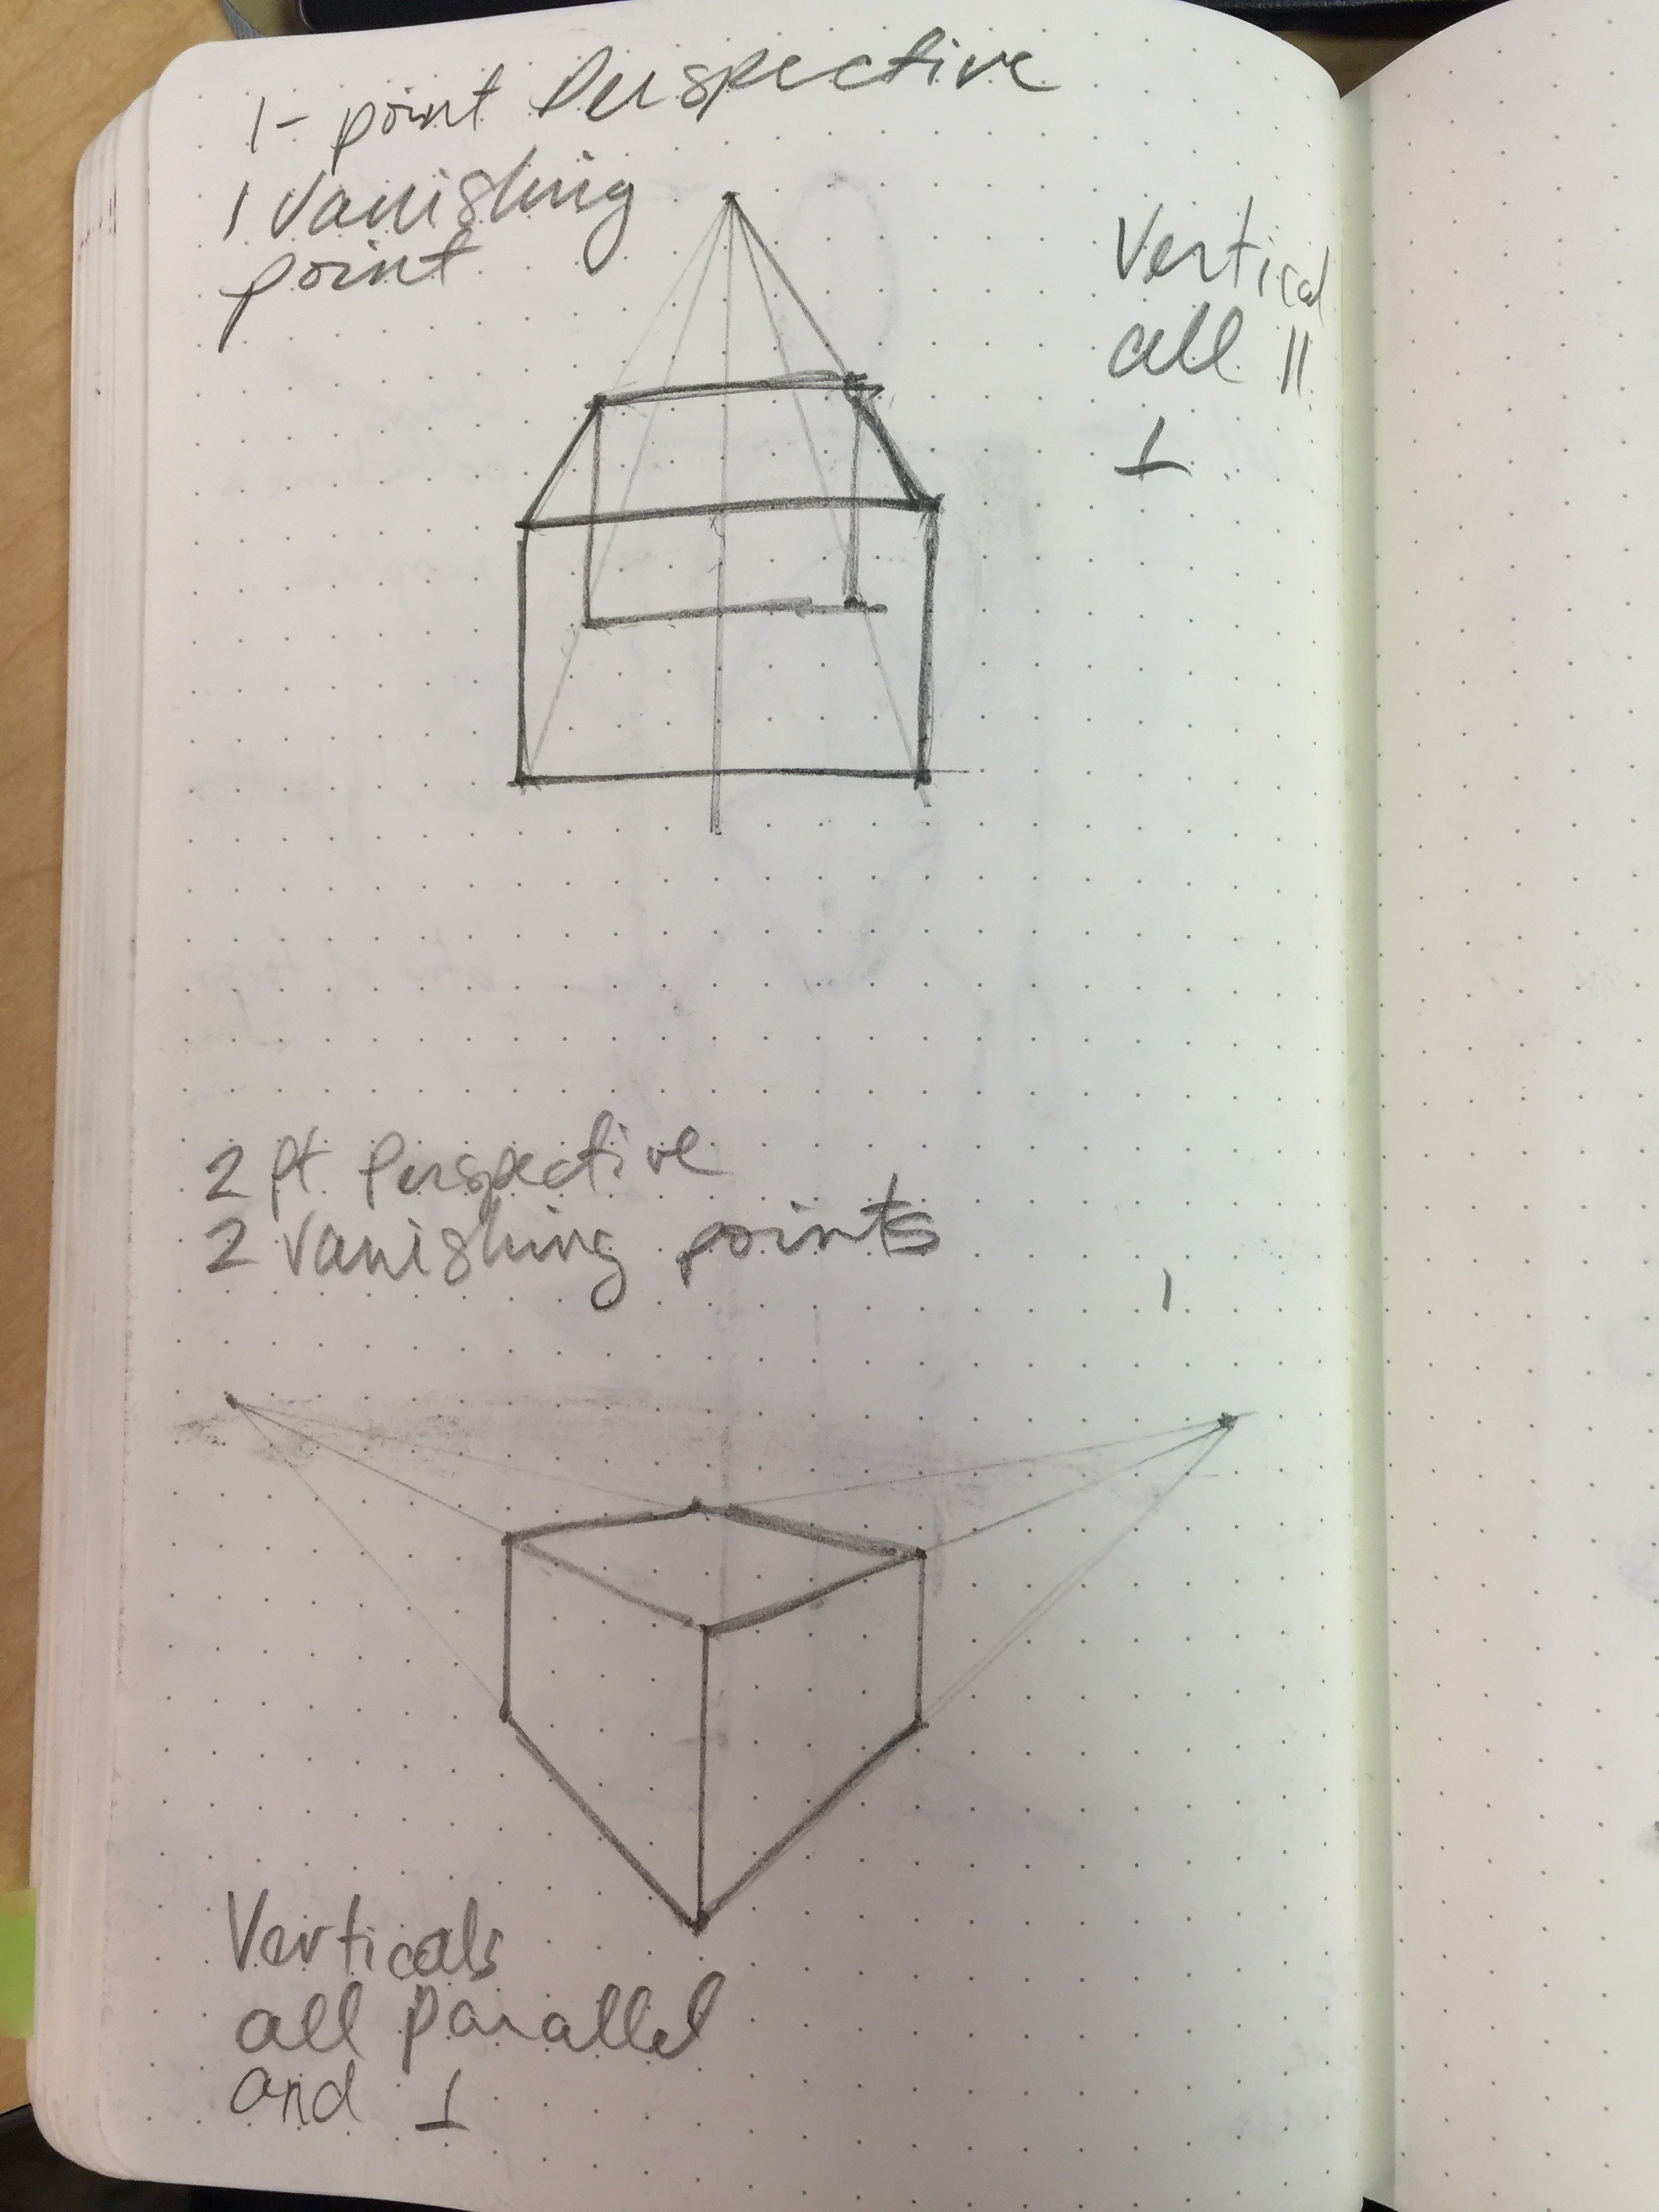 1- point Perspective
1 Vanishing
point
Vertical
all ||
⊥
2 pt. Perspective
2 Vanishing points
Verticals
all parallel
and ⊥